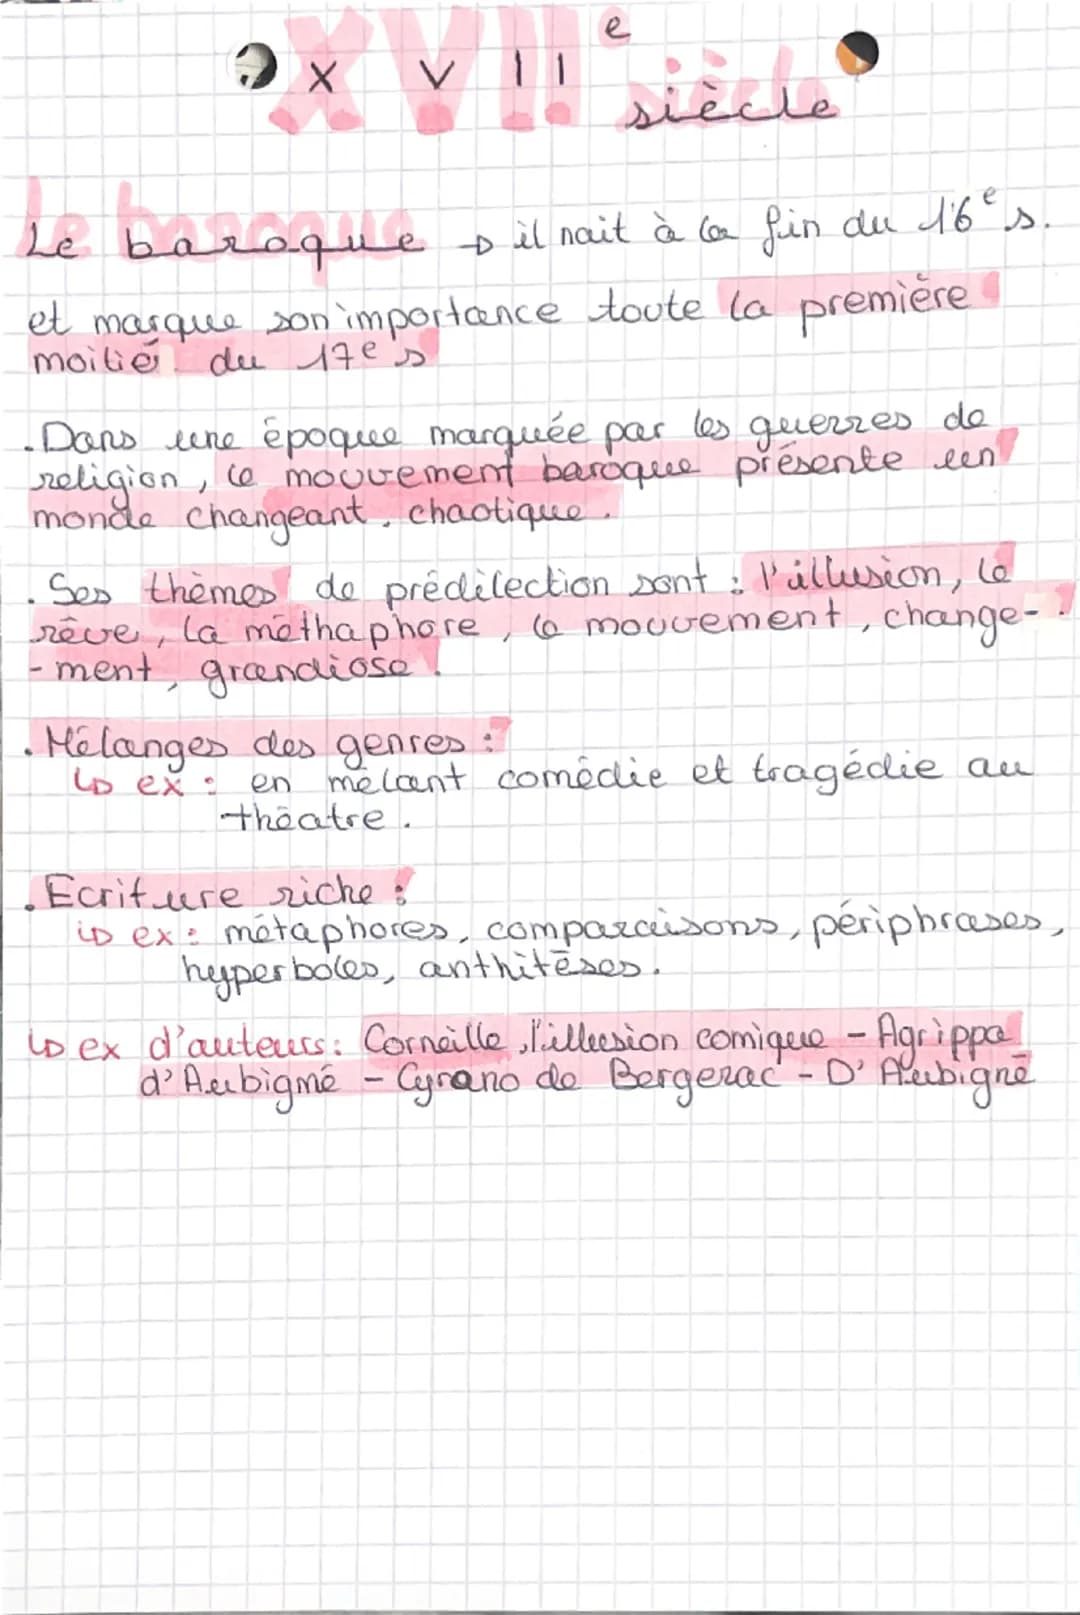 XVIIe siècle
Le baroque → il nait à la fin du 16e s.
et marque son importance toute la première
moitié du 17e s
. Dans une époque marquée par les guerres de
religion, le mouvement baroque présente un
monde changeant, chaotique.
. Ses thèmes de prédilection sont : l'illusion, le
rêve, la méthaphore, le mouvement, change-
-ment, grandiose.
. Mélanges des genres :
↳ ex : en mêlant comédie et tragédie au
théatre.
. Ecriture riche :
↳ ex : métaphores, comparaisons, périphrases,
hyperboles, anthitèses.
↳ ex d'auteurs : Corneille, l'illusion comique - Agrippa
d'Aubigné - Cyrano de Bergerac - D'Aubigné